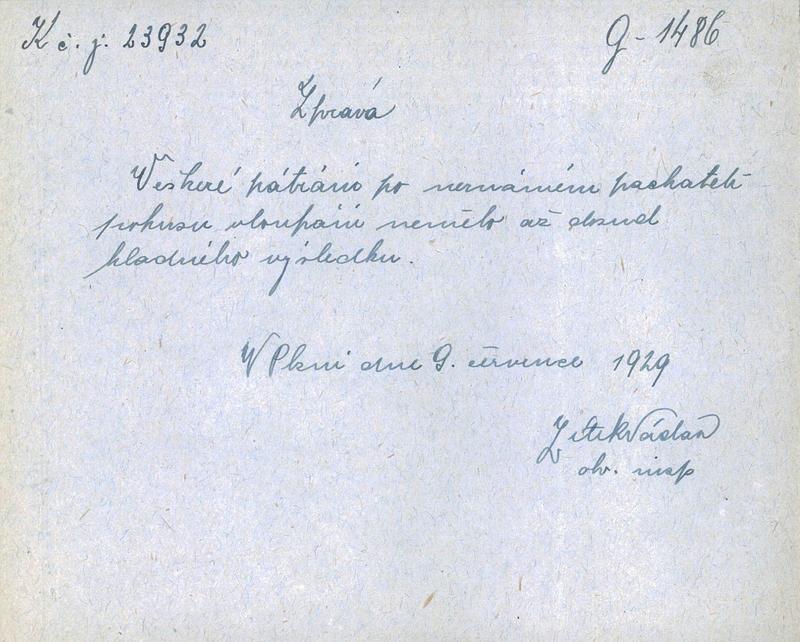 K č. j. 23932
G - 1486
Zpráva
Veškeré pátrání po neznámém pachateli
pokusu vloupání nemělo až dosud
kladného výsledku.
V Plzni dne 9. července 1929
Zítek Václav
obv. insp